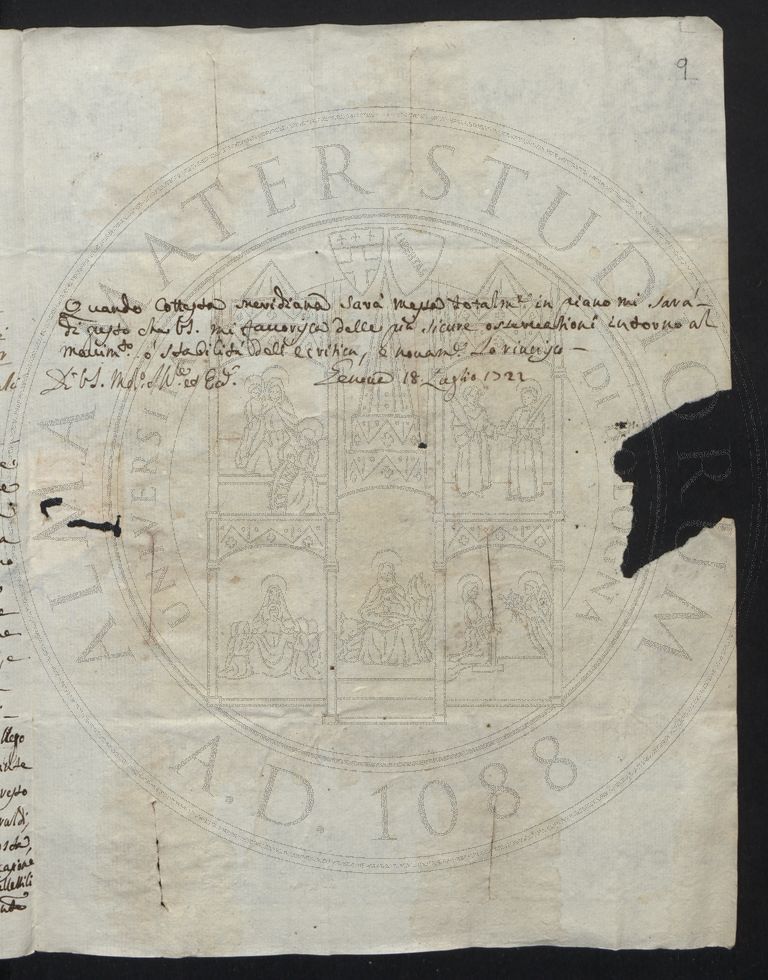 9
Quando Cottesta meridiana Sarà messa totalm.e in piano mi Sarà
di gusto che VS. mi favorisca delle più Sicure osservationi intorno al
movim.to ò Stabilità dell'eclitica, e novam.e La riverisco —
Di VS. Ill.
Genova 18 Luglio 1722
ALMA MATER STUDIORUM
UNIVERSITÀ DI BOLOGNA
A.D. 1088